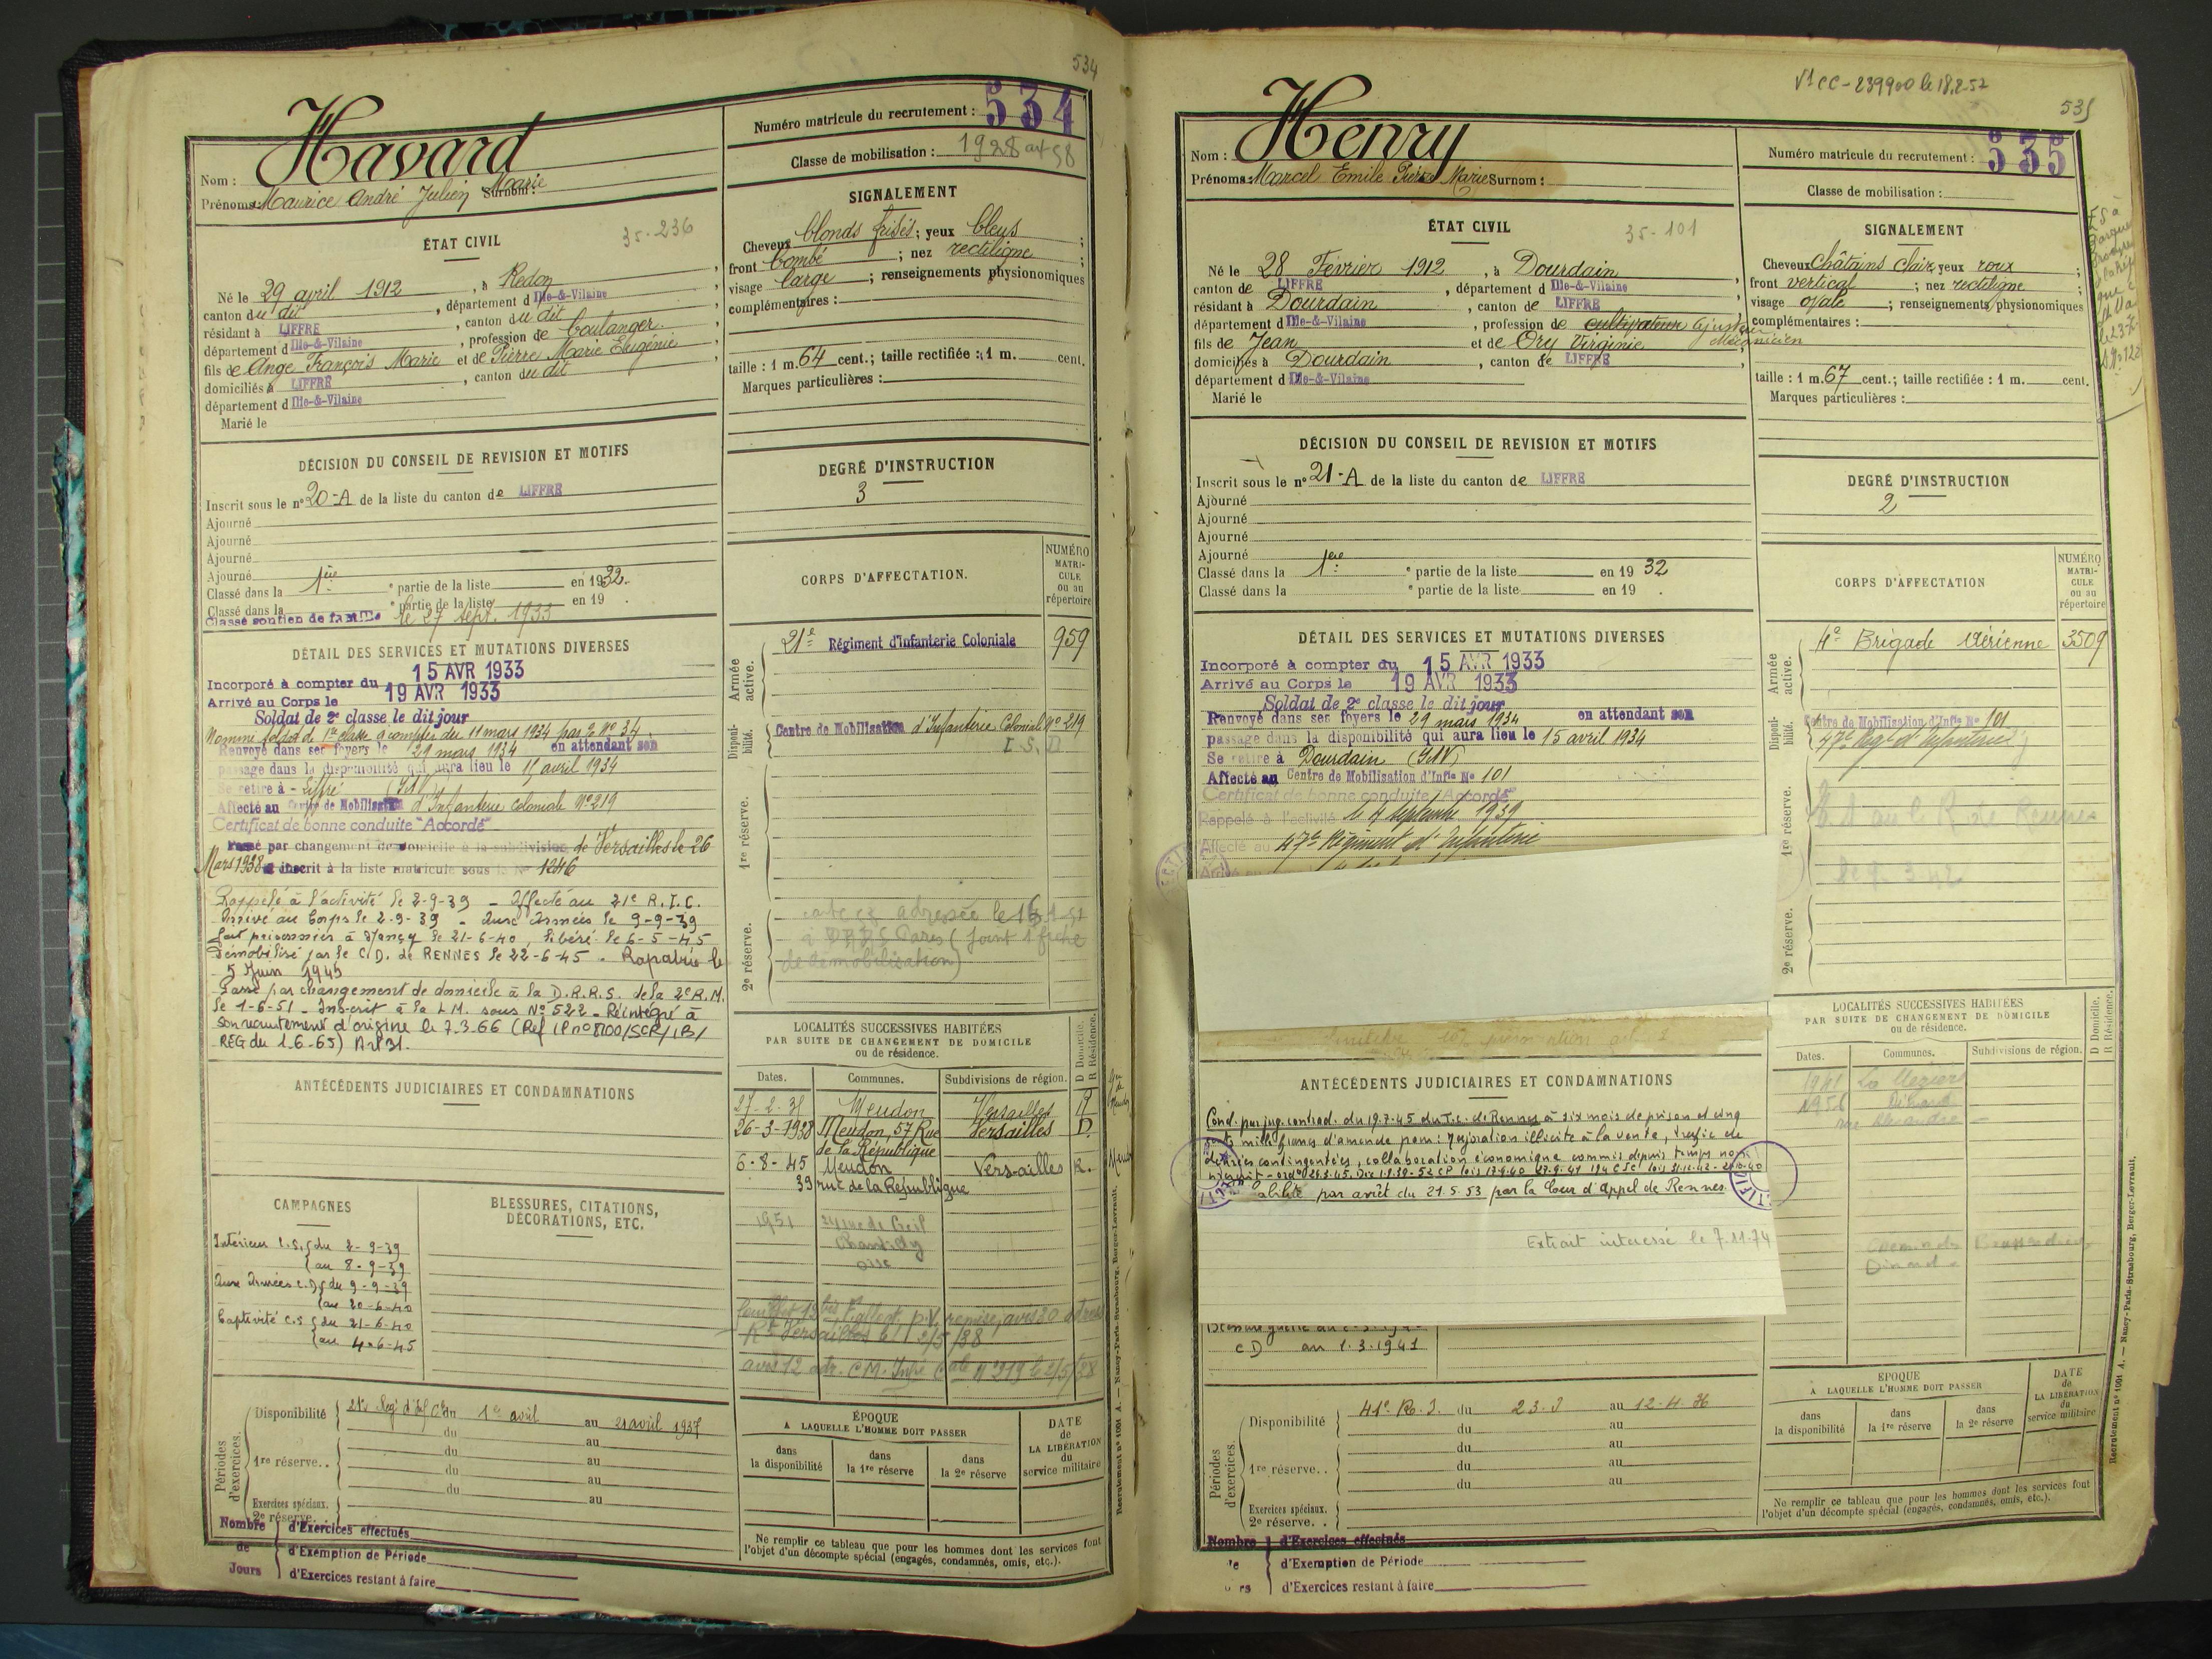 534
Havard
Nom :
Prénoms : Maurice André Julien Marie
Surnom :
Numéro matricule du recrutement : 534
Classe de mobilisation : 1928 art 58
ÉTAT CIVIL
35-236
Né le 29 avril 1912, à Redon
canton du dit, département d Ille-&-Vilaine
résidant à LIFFRÉ, canton du dit
département d Ille-&-Vilaine, profession de boulanger.
fils de Ange François Marie et de Pierre Marie Eugénie
domiciliés à LIFFRÉ, canton du dit
département d Ille-&-Vilaine
Marié le
SIGNALEMENT
Cheveux blonds frisés; yeux bleus;
front bombé; nez rectiligne;
visage large; renseignements physionomiques
complémentaires :
taille : 1 m. 64 cent.; taille rectifiée : 1 m. cent.
Marques particulières :
DÉCISION DU CONSEIL DE REVISION ET MOTIFS
Inscrit sous le n° 20-A de la liste du canton de LIFFRÉ
Ajourné
Ajourné
Ajourné
Ajourné
Classé dans la 1ère ° partie de la liste en 1932.
Classé dans la ° partie de la liste en 19 .
Classé soutien de famille le 27 sept. 1933
DEGRÉ D'INSTRUCTION
3
DÉTAIL DES SERVICES ET MUTATIONS DIVERSES
Incorporé à compter du 15 AVR 1933
Arrivé au Corps le 19 AVR 1933
Soldat de 2e classe le dit jour
Nommé soldat de 1re classe à compter du 11 mars 1934 par O. N° 34.
Renvoyé dans ses foyers le 29 mars 1934 en attendant son
passage dans la disponibilité qui aura lieu le 15 avril 1934
Se retire à - Liffré (I&V)
Affecté au Centre de Mobilisation d'Infanterie Coloniale N°219
Certificat de bonne conduite "Accordé"
Passé par changement de domicile à la subdivision de Versailles le 26
Mars 1938 inscrit à la liste matricule sous le N° 1246
Rappelé à l'activité le 2-9-39 - Affecté au 21e R.I.C.
Arrivé au Corps le 2-9-39 - Aux Armées le 9-9-39
fait prisonnier à Nancy le 21-6-40, libéré le 6-5-45
Démobilisé par le C/D. de RENNES le 22-6-45 - Rapatrié le
5 Juin 1945
Passé par changement de domicile à la D.R.R.S. de la 2e R.M.
le 1-6-51 - Inscrit à la L.M. sous N° 522 - Réintégré à
son recrutement d'origine le 7.3.66 (Réf IP n° 8100/SCR/1B/
REG du 1-6-65) Art 31.
CORPS D'AFFECTATION.
NUMÉRO MATRICULE ou au répertoire
Armée active.
21e Régiment d'infanterie Coloniale 959
Disponibilité.
Centre de Mobilisation d'Infanterie Coloniale N° 219
1re réserve.
2e réserve.
adressée le
Paris (Joint 1 fiche
de démobilisation)
ANTÉCÉDENTS JUDICIAIRES ET CONDAMNATIONS
LOCALITÉS SUCCESSIVES HABITÉES
PAR SUITE DE CHANGEMENT DE DOMICILE
ou de résidence.
D Domicile.
R Résidence.
Dates. Communes. Subdivisions de région.
27-2-35 Meudon Versailles R
26-3-1938 Meudon, 57 Rue Versailles D.
de la République
6-8-45 Meudon Versailles R.
39 rue de la République
1951 rue de Creil
Chantilly
Oise
CAMPAGNES
Intérieur C.S. { du 2-9-39
au 8-9-39
Aux Armées C.D { du 9-9-39
au 20-6-40
Captivité C.S { du 21-6-40
au 4-6-45
BLESSURES, CITATIONS,
DÉCORATIONS, ETC.
Périodes d'exercices.
Disponibilité 21e Rég. d'Inf. Cle du 1er avril au 21 avril 1937
1re réserve..
Exercices spéciaux.
2e réserve.
Nombre de Jours
d'Exercices effectués
d'Exemption de Période
d'Exercices restant à faire
ÉPOQUE
A LAQUELLE L'HOMME DOIT PASSER
dans la disponibilité
dans la 1re réserve
dans la 2e réserve
DATE de LA LIBÉRATION du service militaire
Ne remplir ce tableau que pour les hommes dont les services font
l'objet d'un décompte spécial (engagés, condamnés, omis, etc.).
Recrutement n° 1001 A. — Nancy-Paris-Strasbourg, Berger-Levrault.
V1 CC-239900 le 18.2.52
535
Henry
Nom :
Prénoms : Marcel Emile Pierre Marie Surnom :
Numéro matricule du recrutement : 535
Classe de mobilisation :
ÉTAT CIVIL
35-101
Né le 28 Février 1912, à Dourdain
canton de LIFFRÉ, département d Ille-&-Vilaine
résidant à Dourdain, canton de LIFFRÉ
département d Ille-&-Vilaine, profession de cultivateur Ajusteur
Mécanicien
fils de Jean et de Ory Virginie
domiciliés à Dourdain, canton de LIFFRÉ
département d Ille-&-Vilaine
Marié le
SIGNALEMENT
Cheveux châtains clair; yeux roux;
front vertical; nez rectiligne;
visage ovale; renseignements physionomiques
complémentaires :
taille : 1 m. 67 cent.; taille rectifiée : 1 m. cent.
Marques particulières :
DÉCISION DU CONSEIL DE REVISION ET MOTIFS
Inscrit sous le n° 21-A de la liste du canton de LIFFRÉ
Ajourné
Ajourné
Ajourné
Ajourné
Classé dans la 1ère ° partie de la liste en 19 32
Classé dans la ° partie de la liste en 19 .
DEGRÉ D'INSTRUCTION
2
DÉTAIL DES SERVICES ET MUTATIONS DIVERSES
Incorporé à compter du 15 AVR 1933
Arrivé au Corps le 19 AVR 1933
Soldat de 2e classe le dit jour
Renvoyé dans ses foyers le 29 mars 1934 en attendant son
passage dans la disponibilité qui aura lieu le 15 avril 1934
Se retire à Dourdain (I&V)
Affecté au Centre de Mobilisation d'Infie N° 101
Certificat de bonne conduite "Accordé"
Rappelé à l'activité le 4 septembre 1939
Affecté au 47e Régiment d'Infanterie
CORPS D'AFFECTATION
NUMÉRO MATRICULE ou au répertoire
Armée active.
4e Brigade Aérienne 3509
Disponibilité.
Centre de Mobilisation d'Infie N° 101
47e Régt d'Infanterie
1re réserve.
2e réserve.
LOCALITÉS SUCCESSIVES HABITÉES
PAR SUITE DE CHANGEMENT DE DOMICILE
ou de résidence.
D Domicile.
R Résidence.
Dates. Communes. Subdivisions de région.
1941
1956 Dinard
ANTÉCÉDENTS JUDICIAIRES ET CONDAMNATIONS
Cond. par jug. contrad. du 19.7.45 du T.c. de Rennes à six mois de prison et cinq
cents mille francs d'amende pour : Majoration illicite à la vente, trafic de
denrées contingentées, collaboration économique commis depuis temps non
abilité par arrêt du 21.5.53 par la Cour d'Appel de Rennes.
Extrait intéressé le 7.11.74
CD au 1.3.1941
Périodes d'exercices.
Disponibilité 41e R.I. du 23.3 au 12.4.36
1re réserve..
Exercices spéciaux.
2e réserve..
Nombre
d'Exercices effectués
d'Exemption de Période
d'Exercices restant à faire
ÉPOQUE
A LAQUELLE L'HOMME DOIT PASSER
dans la disponibilité
dans la 1re réserve
dans la 2e réserve
DATE de LA LIBÉRATION du service militaire
Ne remplir ce tableau que pour les hommes dont les services font
l'objet d'un décompte spécial (engagés, condamnés, omis, etc.).
Recrutement n° 1001 A. — Nancy-Paris-Strasbourg, Berger-Levrault.